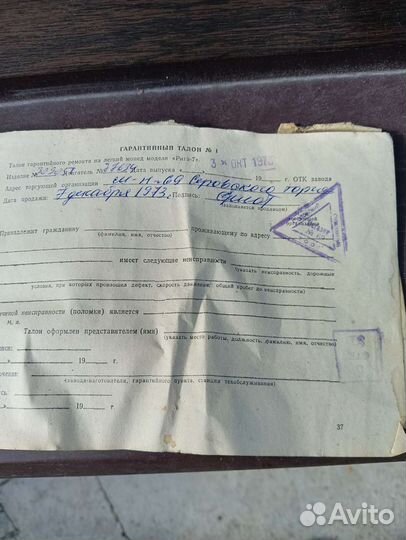 ГАРАНТИЙНЫЙ ТАЛОН № 1
Талон гарантийного ремонта на легкий мопед модели «Рига-7»
3 ОКТ 1973
Изделие № двигатель № 37684 Дата выпуска « 19 г. ОТК завода
Адрес торгующей организации м-н-69 Серовского торга
Дата продажи: 7 декабря 1973. Подпись:
(заполняется продавцом)
Принадлежит гражданину проживающему по адресу
(фамилия, имя, отчество)
имеет следующие неисправности
(указать неисправность, дорожные
условия, при которых произошел дефект, скорость движения; общий пробег до неисправности)
неисправности (поломке) является
М. п.
Талон оформлен представителем (ями)
(указать место работы, должность, фамилию, имя, отчество)
» 19 г.
» 19 г.
(завода-изготовителя, гарантийного пункта, станции техобслуживания)
» 19 г.
37
Avito